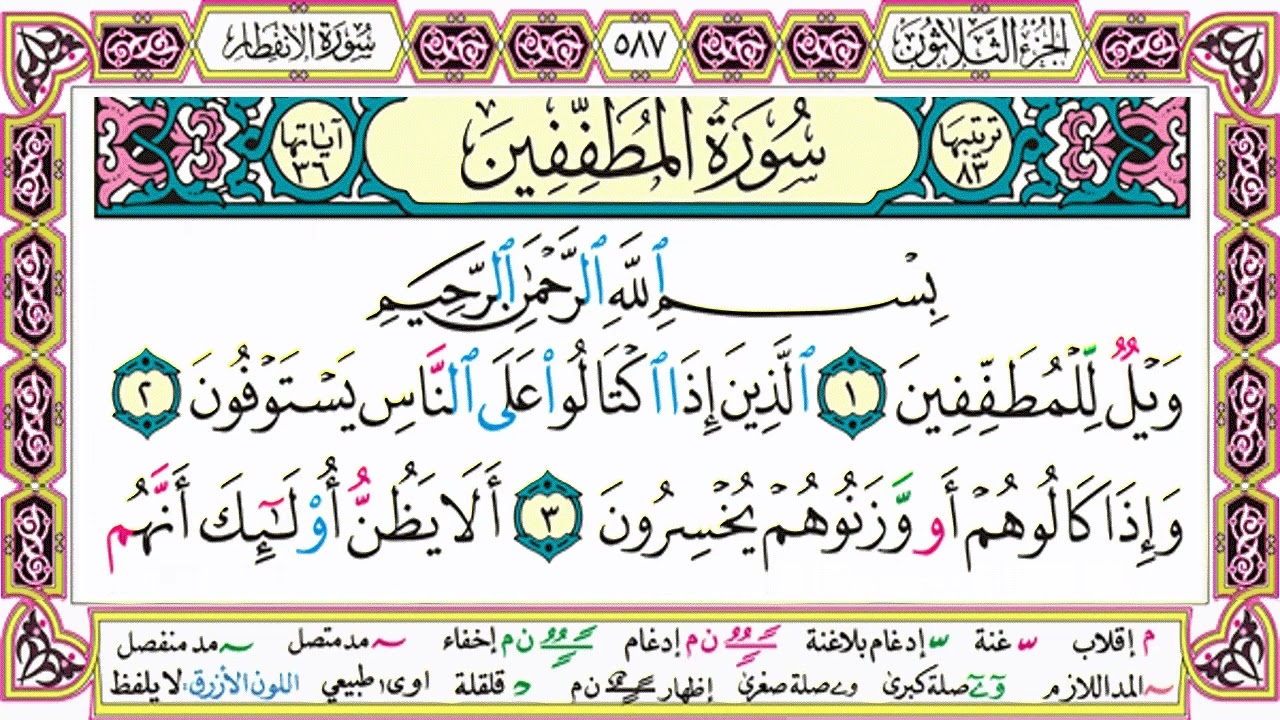 الجزء الثلاثون ٥٨٧ سورة الانفطار
ترتيبها ٨٣ سُورَةُ المُطَفِّفِينَ آياتها ٣٦
بِسْمِ ٱللَّهِ ٱلرَّحْمَٰنِ ٱلرَّحِيمِ
وَيْلٌ لِّلْمُطَفِّفِينَ ١ ٱلَّذِينَ إِذَا ٱكْتَالُوا۟ عَلَى ٱلنَّاسِ يَسْتَوْفُونَ ٢
وَإِذَا كَالُوهُمْ أَو وَّزَنُوهُمْ يُخْسِرُونَ ٣ أَلَا يَظُنُّ أُو۟لَٰٓئِكَ أَنَّهُم
م إقلاب غنة إدغام بلاغنة ن م إدغام ن م إخفاء مد متصل مد منفصل
المد اللازم صلة كبرى صلة صغرى إظهار ن م د قلقلة اوى طبيعي اللون الأزرق: لا يلفظ